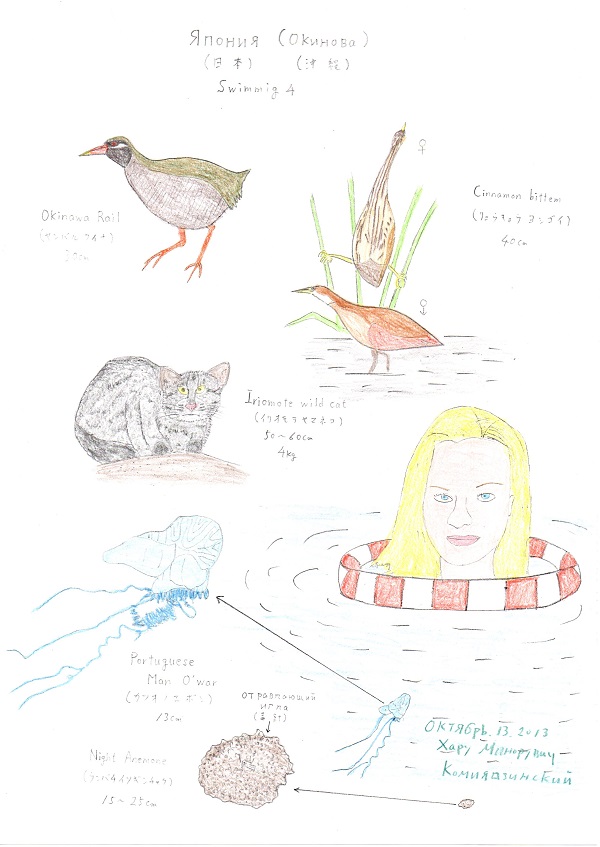 Япония (Окинова)
(日本) (沖縄)
Swimmig 4
♀
Cinnamon bittern
(リュウキュウ ヨシゴイ)
40cm
Okinawa Rail
(ヤンバル クイナ)
30cm
Iriomote wild cat
(イリオモテ ヤマネコ)
50~60cm
4kg
Portuguese
Man O'war
(カツオノエボシ)
13cm
отравляющий
игла
Night Anemone
15~25cm
Октябрь. 13. 2013
Хару
Комиядзинский